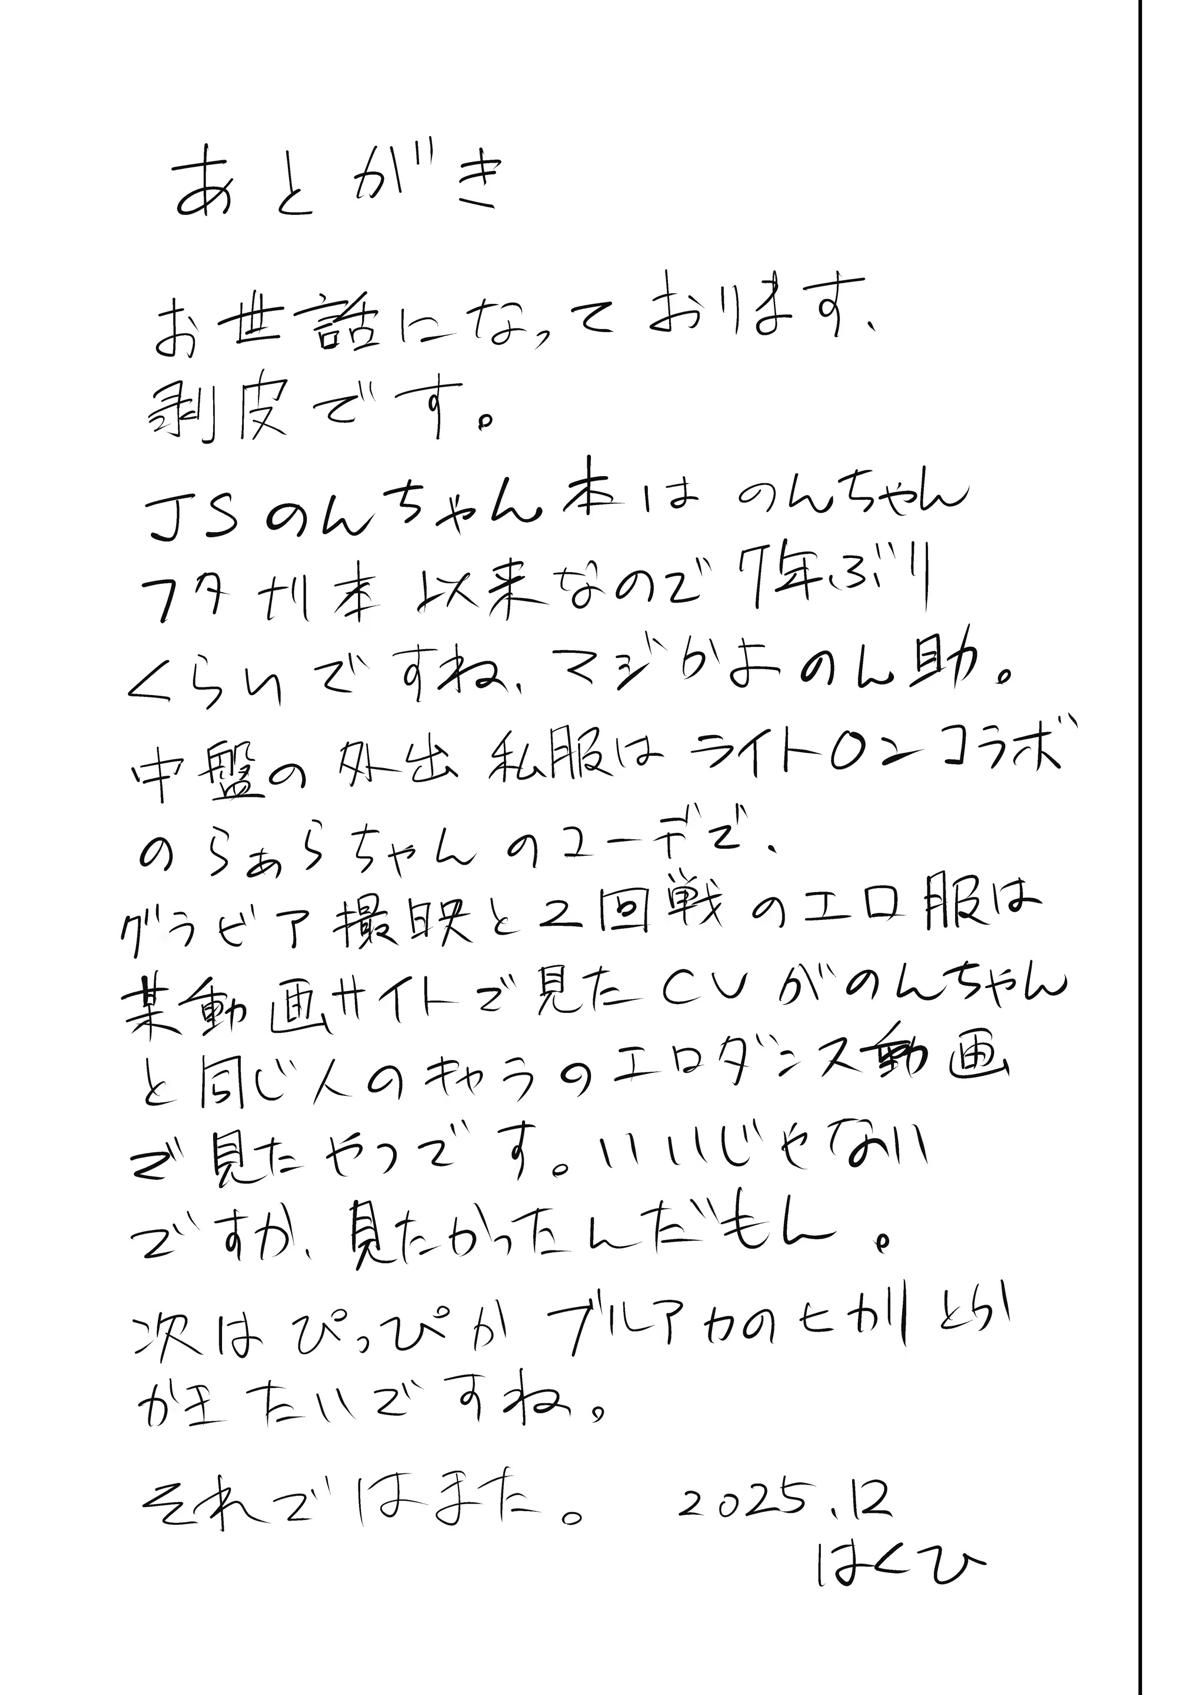 あとがき
お世話になっております、
剥皮です。
JSのんちゃん本はのんちゃん
フタナリ本以来なので7年ぶり
くらいですね、マジかよのん助。
中盤の外出私服はライト○ンコラボ
のらぁらちゃんのコーデで、
グラビア撮映と2回戦のエロ服は
某動画サイトで見たCVがのんちゃん
と同じ人のキャラのエロダンス動画
で見たやつです。いいじゃない
ですか、見たかったんだもん。
次はぴっぴかブルアカのヒカリとか
かきたいですね。
それではまた。 2025.12
はくひ